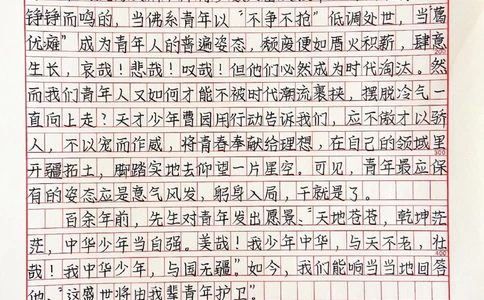 铮铮而鸣的，当佛系青年以“不争不抢”低调处世，当葛
优瘫”成为青年人的普遍姿态，颓废便如厝火积薪，肆意
200
生长，哀哉！悲哉！叹哉！但他们必然成为时代淘汰。然
而我们青年人又如何才能不被时代潮流裹挟，摆脱冷气一
直向上走？天才少年曹园用行动告诉我们，应不傲才以骄
人，不以宠而作威，将青春奉献给理想，在自己的领域里
300
开疆拓土，脚踏实地去仰望一片星空。可见，青年最应保
有的姿态应是意气风发，躬身入局，干就是了。
百余年前，先生对青年发出愿景、“天地苍苍，乾坤茫
茫，中华少年当自强。美哉！我少年中华，与天不老，壮
400
哉！我中华少年，与国无疆”。如今，我们能响当当地回答
他、“这盛世将由我辈青年护卫”。